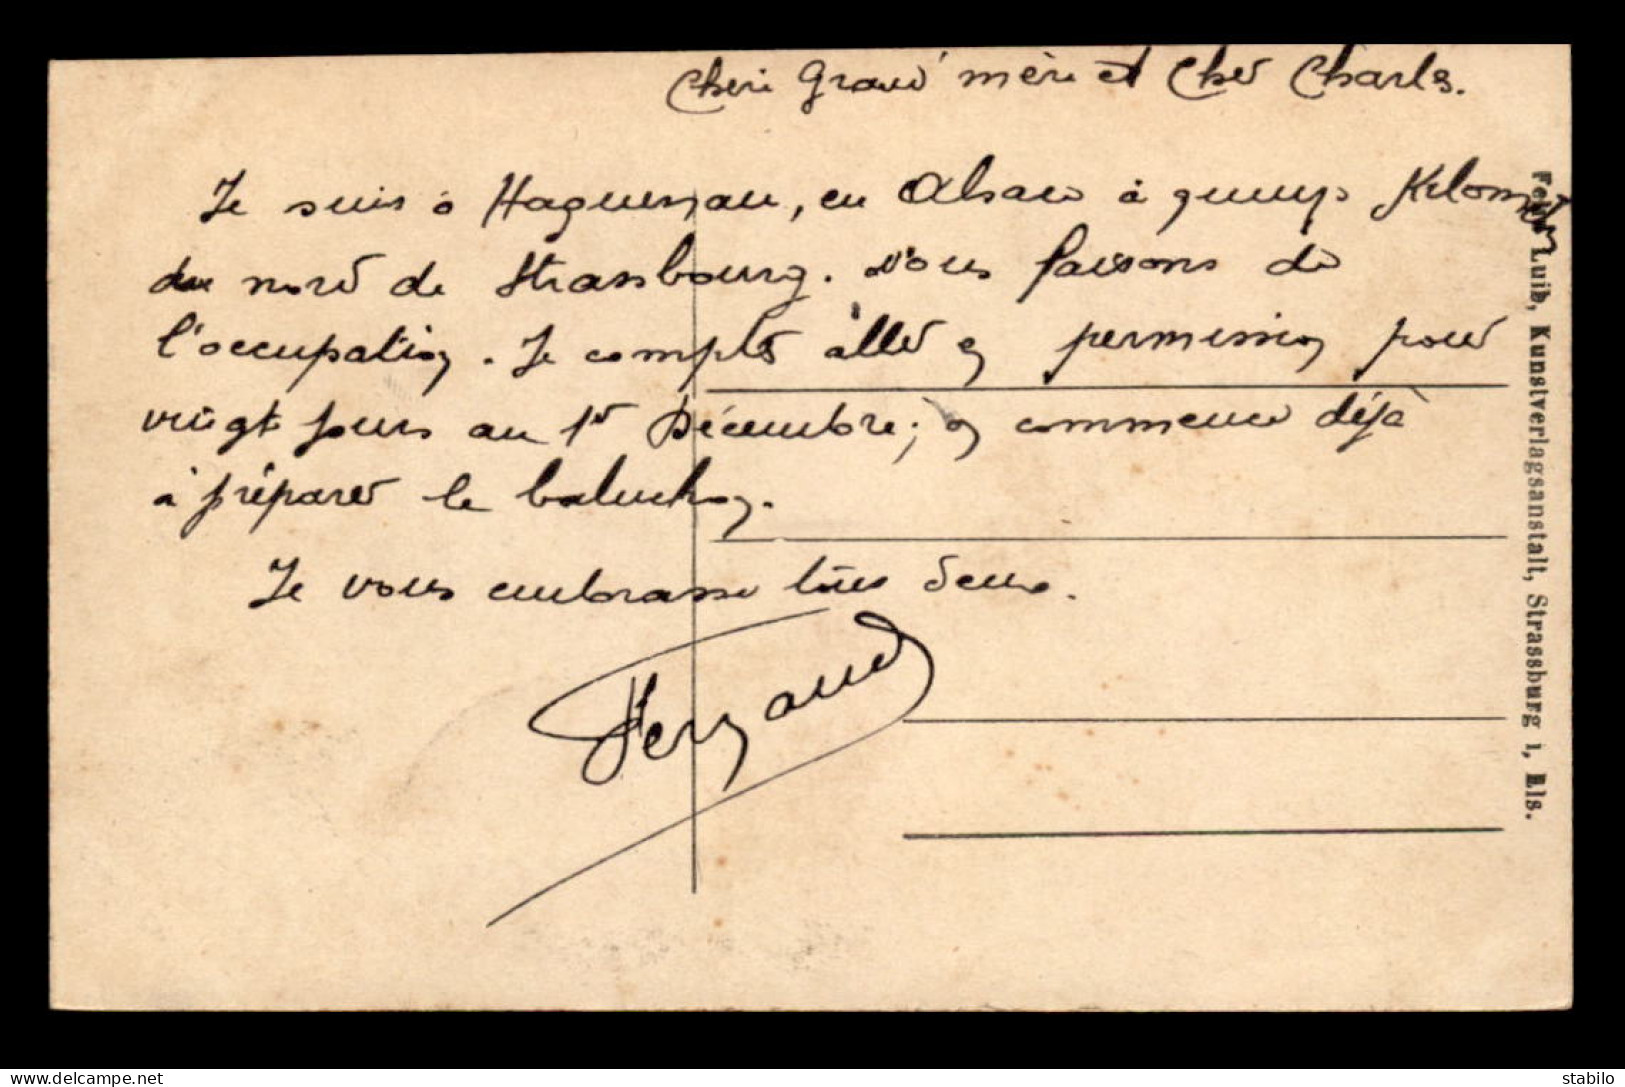 Chère Grand'mère et Cher Charles.
Je suis à Haguenau, en Alsace à quinze Kilomètr
du nord de Strasbourg. Nous faisons de
l'occupation. Je compte aller en permission pour
vingt jours au 1er Décembre; on commence déjà
à préparer le baluchon.
Je vous embrasse tous deux.
Fernand
Luib, Kunstverlagsanstalt, Strassburg i, Els.
www.delcampe.net
stabilo